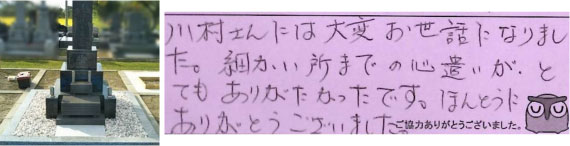 川村さんには大変お世話になりまし
た。細かい所までの心遣いが、と
てもありがたかったです。ほんとうに
ありがとうございました。
ご協力ありがとうございました。